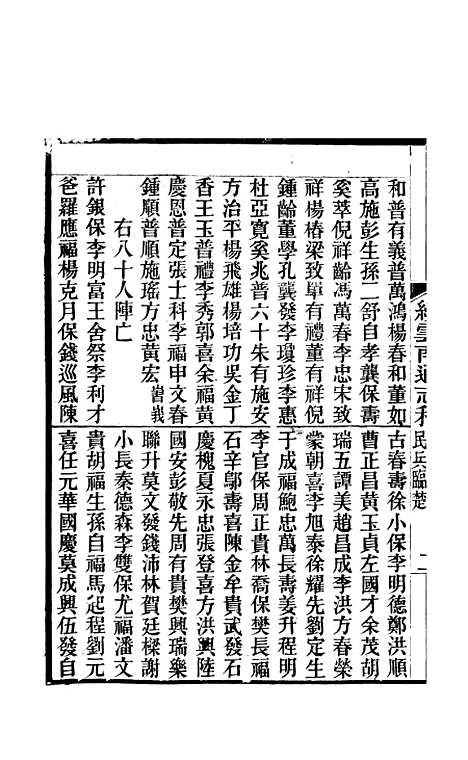 和普有義普萬鴻楊春和董如古春壽徐小保李明德鄭洪順
高施彭生孫二舒自孝龔保壽曹正昌黃玉貞左國才余茂胡
奚萃倪祥齡馮萬春李忠宋致瑞五譚美趙昌成李洪方春榮
祥楊椿梁致單有禮董有祥倪蒙朝喜李旭泰徐耀先劉定生
鍾齡董學孔龔發李瓊珍李惠于成福鮑忠萬長壽姜升程明
杜亞寬奚兆普六十朱有施安李官保周正貴林喬保樊長福
方治平楊飛雄楊培功吳金丁石辛鄔壽喜陳金牟貴武發石
香王玉普禮李秀郭喜余福黃慶槐夏永忠張登喜方洪興陸
慶恩普定張士科李福申文春國安彭敬先周有貴樊興瑞樂
鍾順普順施瑤方忠黃宏嵩峩聯升莫文發錢沛林賀廷樑謝
右八十人陣亡
小長秦德森李雙保尤福潘文
許銀保李明富王舍祭李利才貴胡福生孫自福馬起程劉元
爸羅應福楊克月保錢巡風陳喜任元華國慶莫成興伍發自
續雲南通志稿 民兵臨楚 二